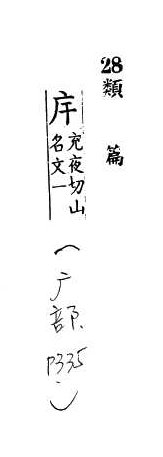 28 類篇
充夜切山
名文一
(广部 P335)